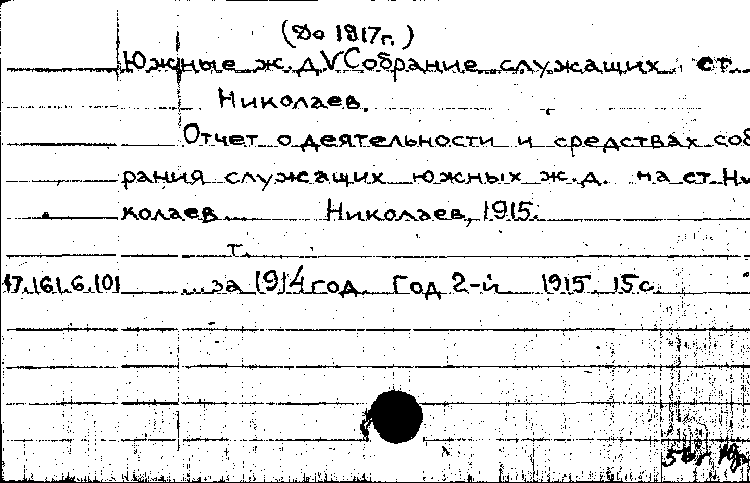 (До 1917г.)
Южные ж.д. V Собрание служащих ст.
Николаев.
Отчет о деятельности и средствах соб
рания служащих южных ж.д. на ст. Ни
колаев... Николаев, 1915.
т.
17.161.6.101 ...за 1914 год. Год 2-й 1915. 15 с.